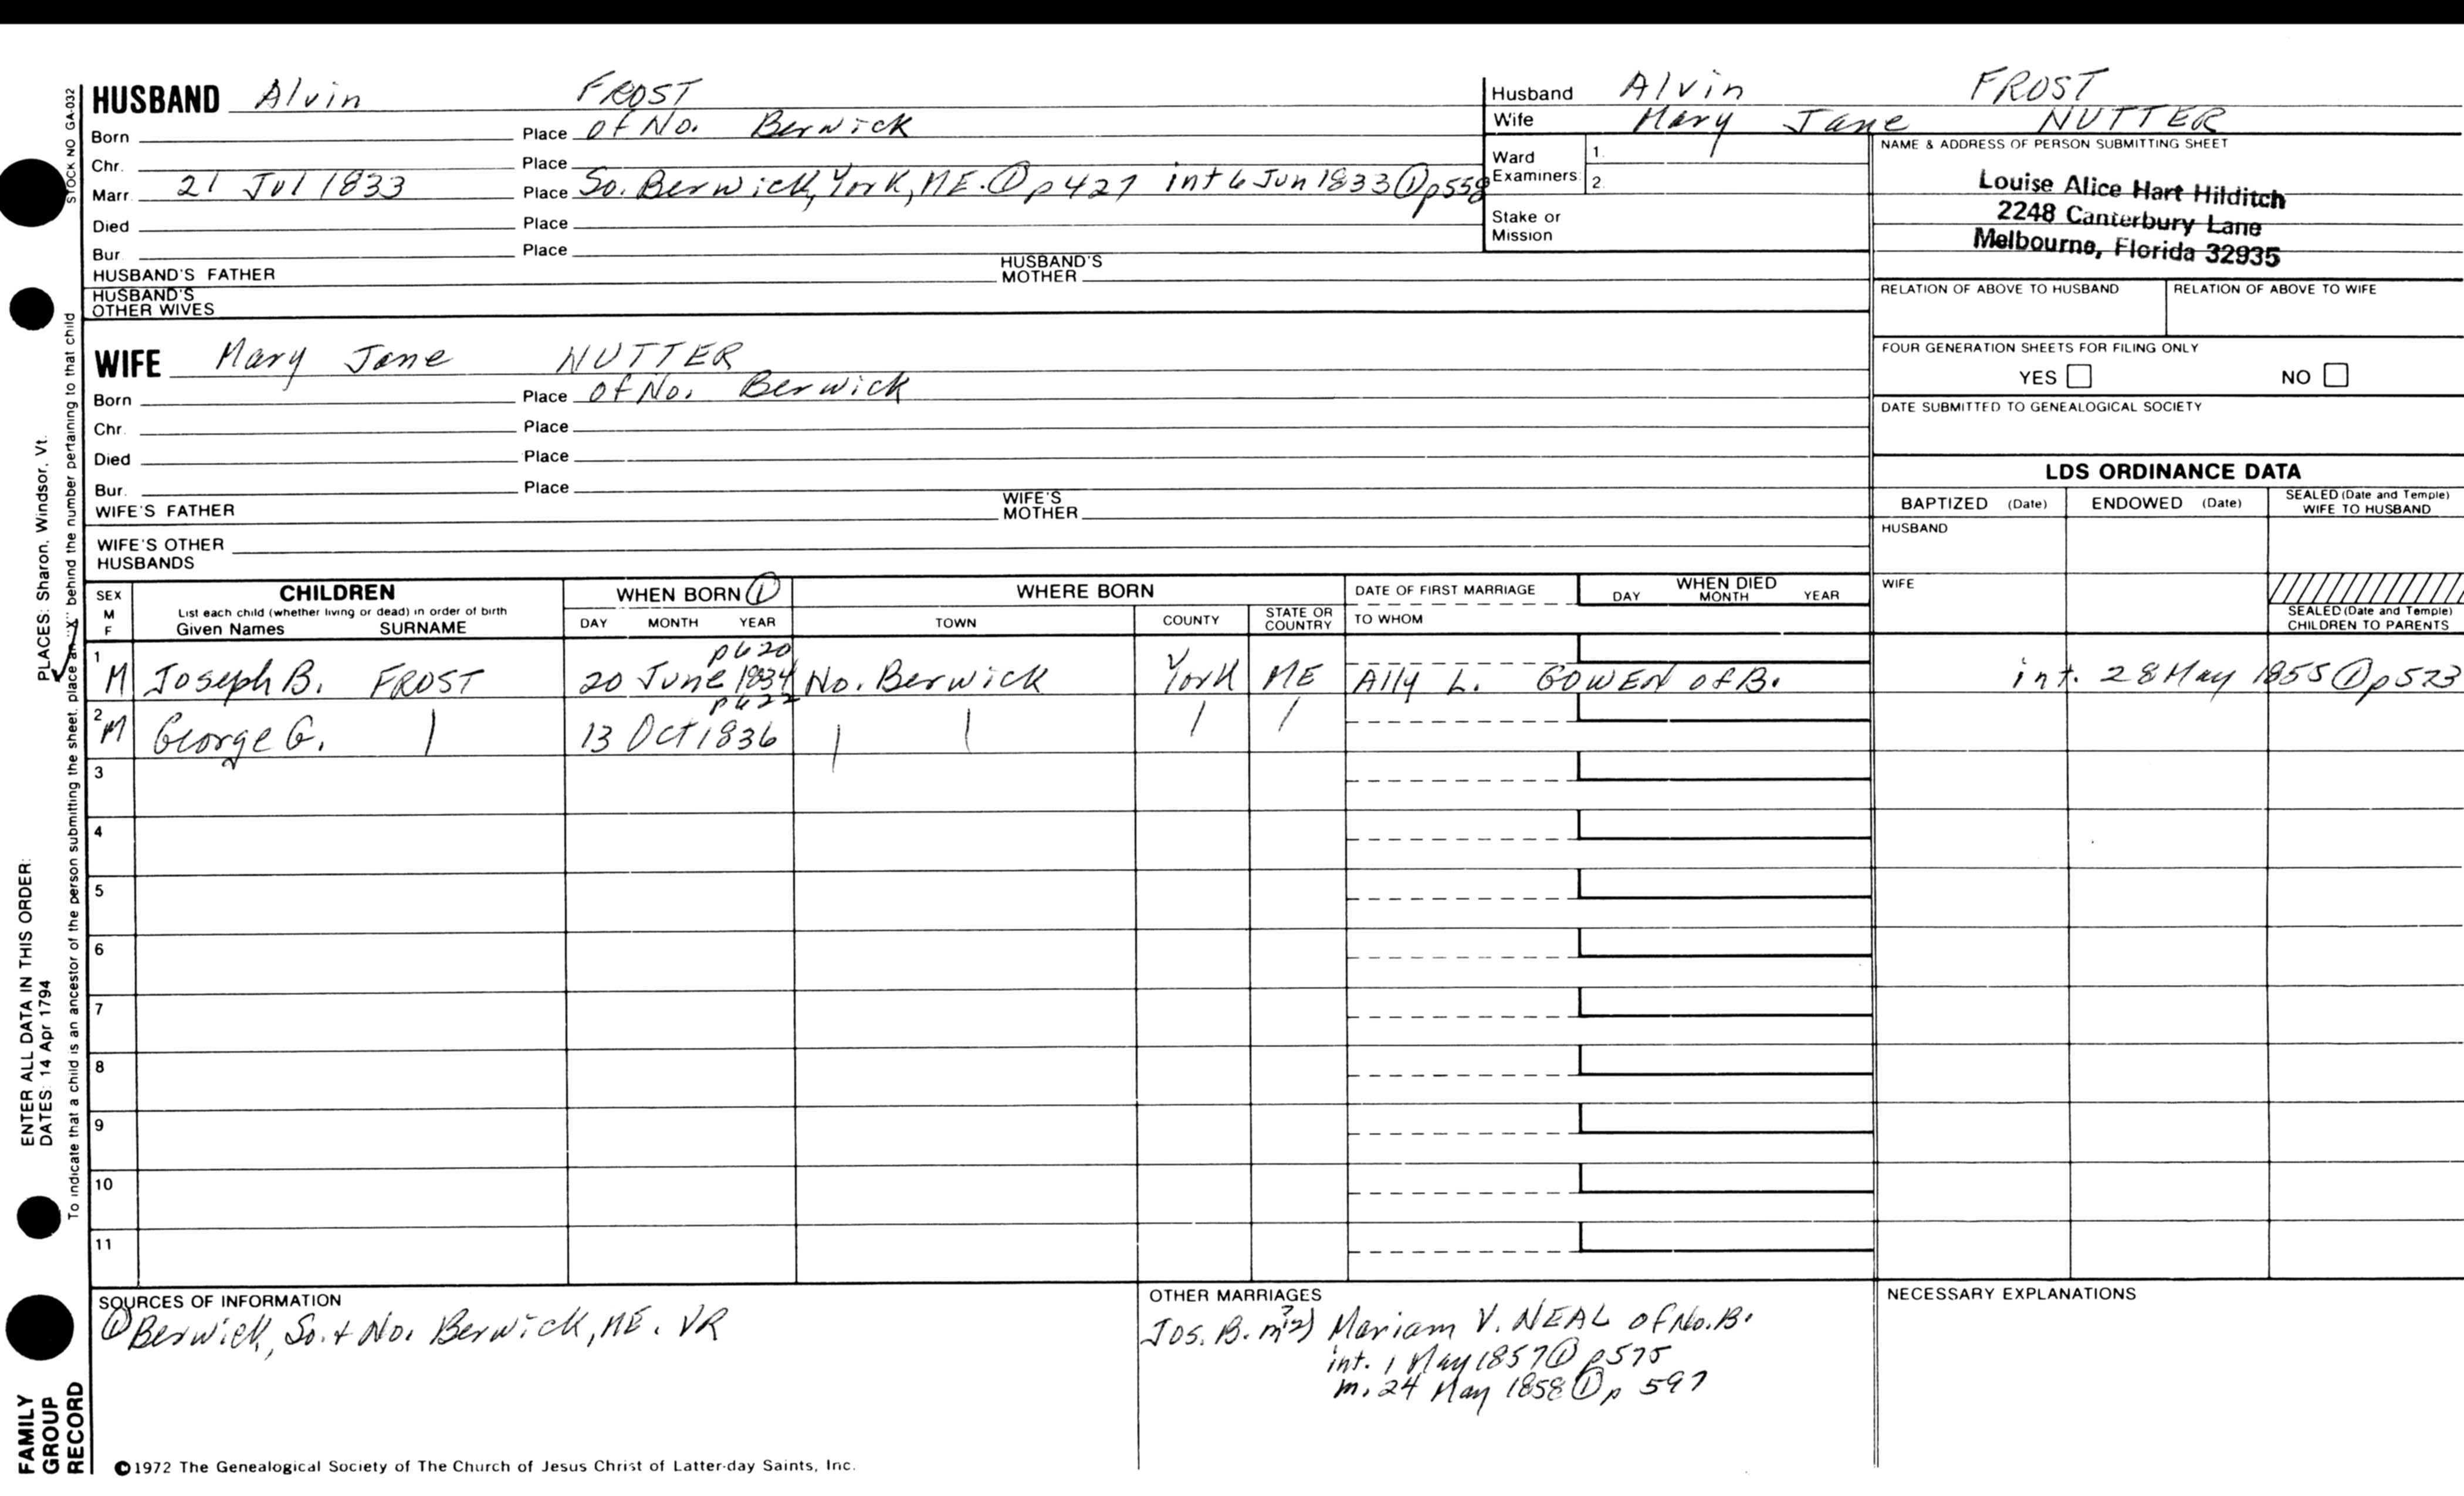 HUSBAND Alvin FROST
Born Place of No. Berwick
Chr. Place
Marr. 21 Jul 1833 Place So. Berwick, York, ME. ① p 427 int 6 Jun 1833 ① p558
Died Place
Bur. Place
HUSBAND'S FATHER HUSBAND'S MOTHER
HUSBAND'S OTHER WIVES
Husband Alvin FROST
Wife Mary Jane NUTTER
Ward Examiners 1. 2.
Stake or Mission
NAME & ADDRESS OF PERSON SUBMITTING SHEET
Louise Alice Hart Hilditch
2248 Canterbury Lane
Melbourne, Florida 32935
RELATION OF ABOVE TO HUSBAND RELATION OF ABOVE TO WIFE
FOUR GENERATION SHEETS FOR FILING ONLY
YES NO
DATE SUBMITTED TO GENEALOGICAL SOCIETY
WIFE Mary Jane NUTTER
Born Place of No. Berwick
Chr. Place
Died Place
Bur. Place
WIFE'S FATHER WIFE'S MOTHER
WIFE'S OTHER HUSBANDS
LDS ORDINANCE DATA
BAPTIZED (Date) ENDOWED (Date) SEALED (Date and Temple) WIFE TO HUSBAND
HUSBAND
WIFE
SEALED (Date and Temple) CHILDREN TO PARENTS
SEX M F
CHILDREN
List each child (whether living or dead) in order of birth
Given Names SURNAME
WHEN BORN ①
DAY MONTH YEAR
WHERE BORN
TOWN COUNTY STATE OR COUNTRY
DATE OF FIRST MARRIAGE
TO WHOM
WHEN DIED
DAY MONTH YEAR
p620
1 M Joseph B. FROST 20 June 1834 No. Berwick York ME Ally L. GOWEN of B. int. 28 May 1855 ① p523
p622
2 M George G. | 13 Oct 1836 | | / /
3
4
5
6
7
8
9
10
11
SOURCES OF INFORMATION
① Berwick, So. + No. Berwick, ME. VR
OTHER MARRIAGES
Jos. B. m?2) Mariam V. NEAL of No. B.
int. 1 May 1857 ① p575
m. 24 May 1858 ① p 597
NECESSARY EXPLANATIONS
©1972 The Genealogical Society of The Church of Jesus Christ of Latter-day Saints, Inc.
STOCK NO GA-032
To indicate that a child is an ancestor of the person submitting the sheet, place an "X" behind the number pertaining to that child
ENTER ALL DATA IN THIS ORDER:
DATES: 14 Apr 1794 PLACES: Sharon, Windsor, Vt.
FAMILY
GROUP
RECORD